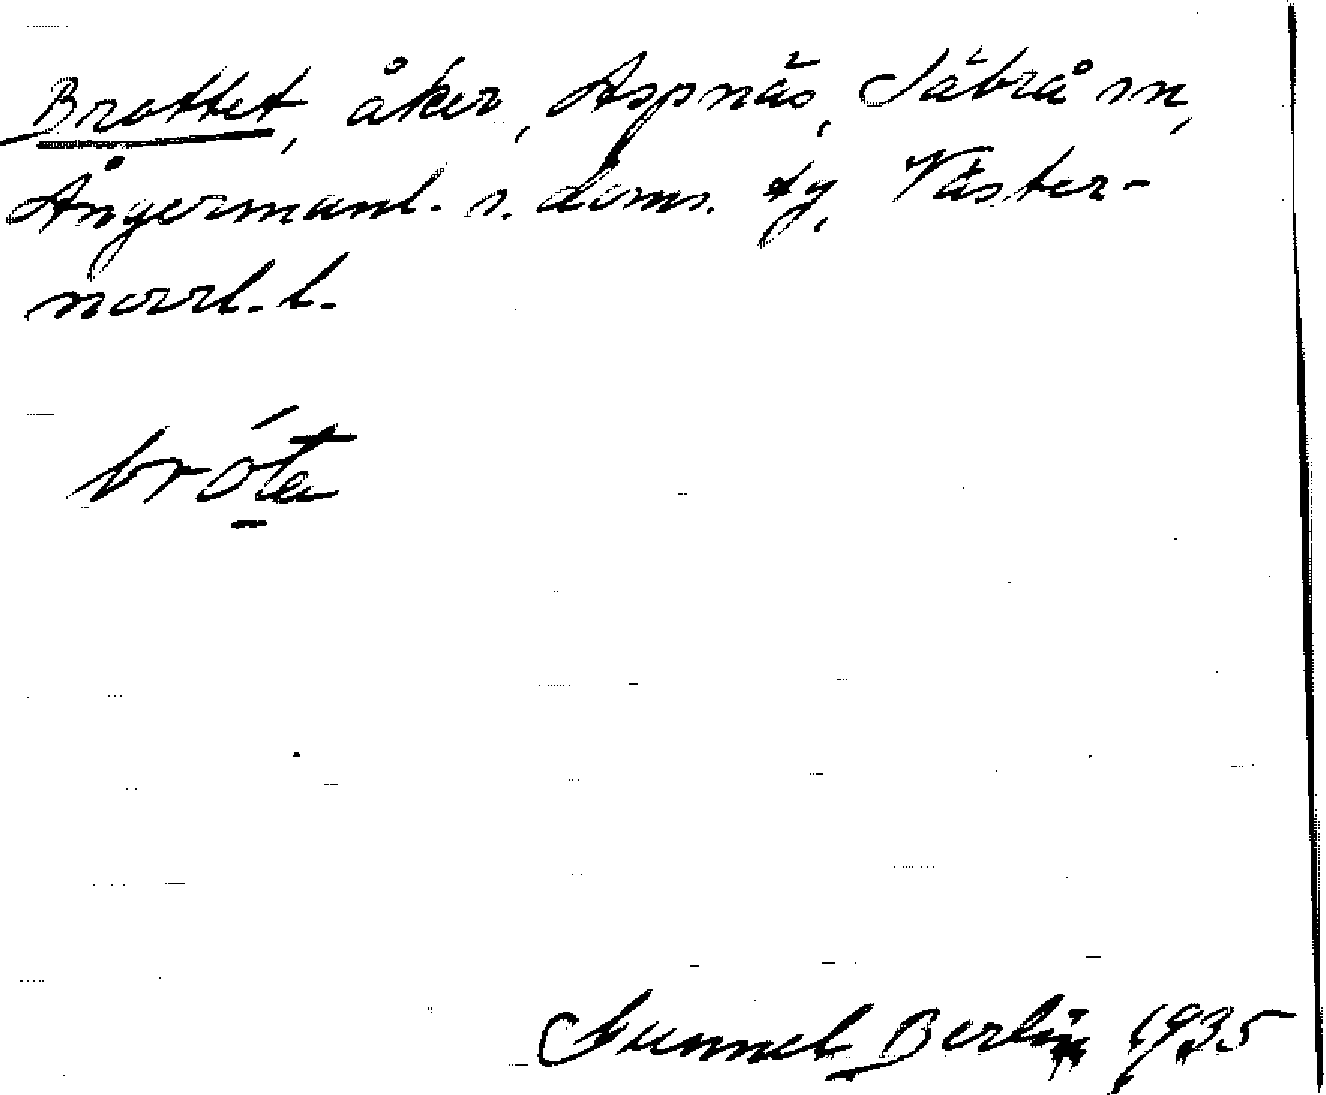 Brottet, åker, Aspnäs, Säbrå sn,
Ångermanl. s. doms. tg, Väster-
norrl. l.
bróta
Gunnel Berlin 1935